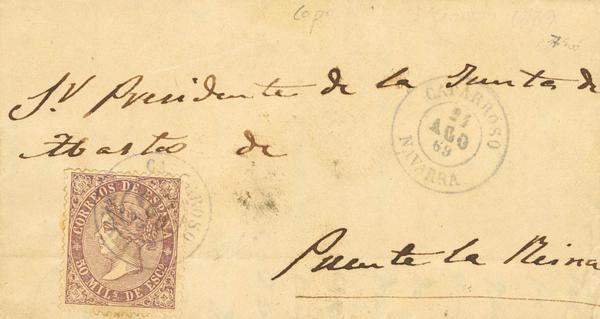 Sr Presidente de la Junta de
Abastos de
Puente la Reina
CAPARROSO
21
AGO
69
NAVARRA
CORREOS DE ESPAÑA
50 MILS DE ESCO